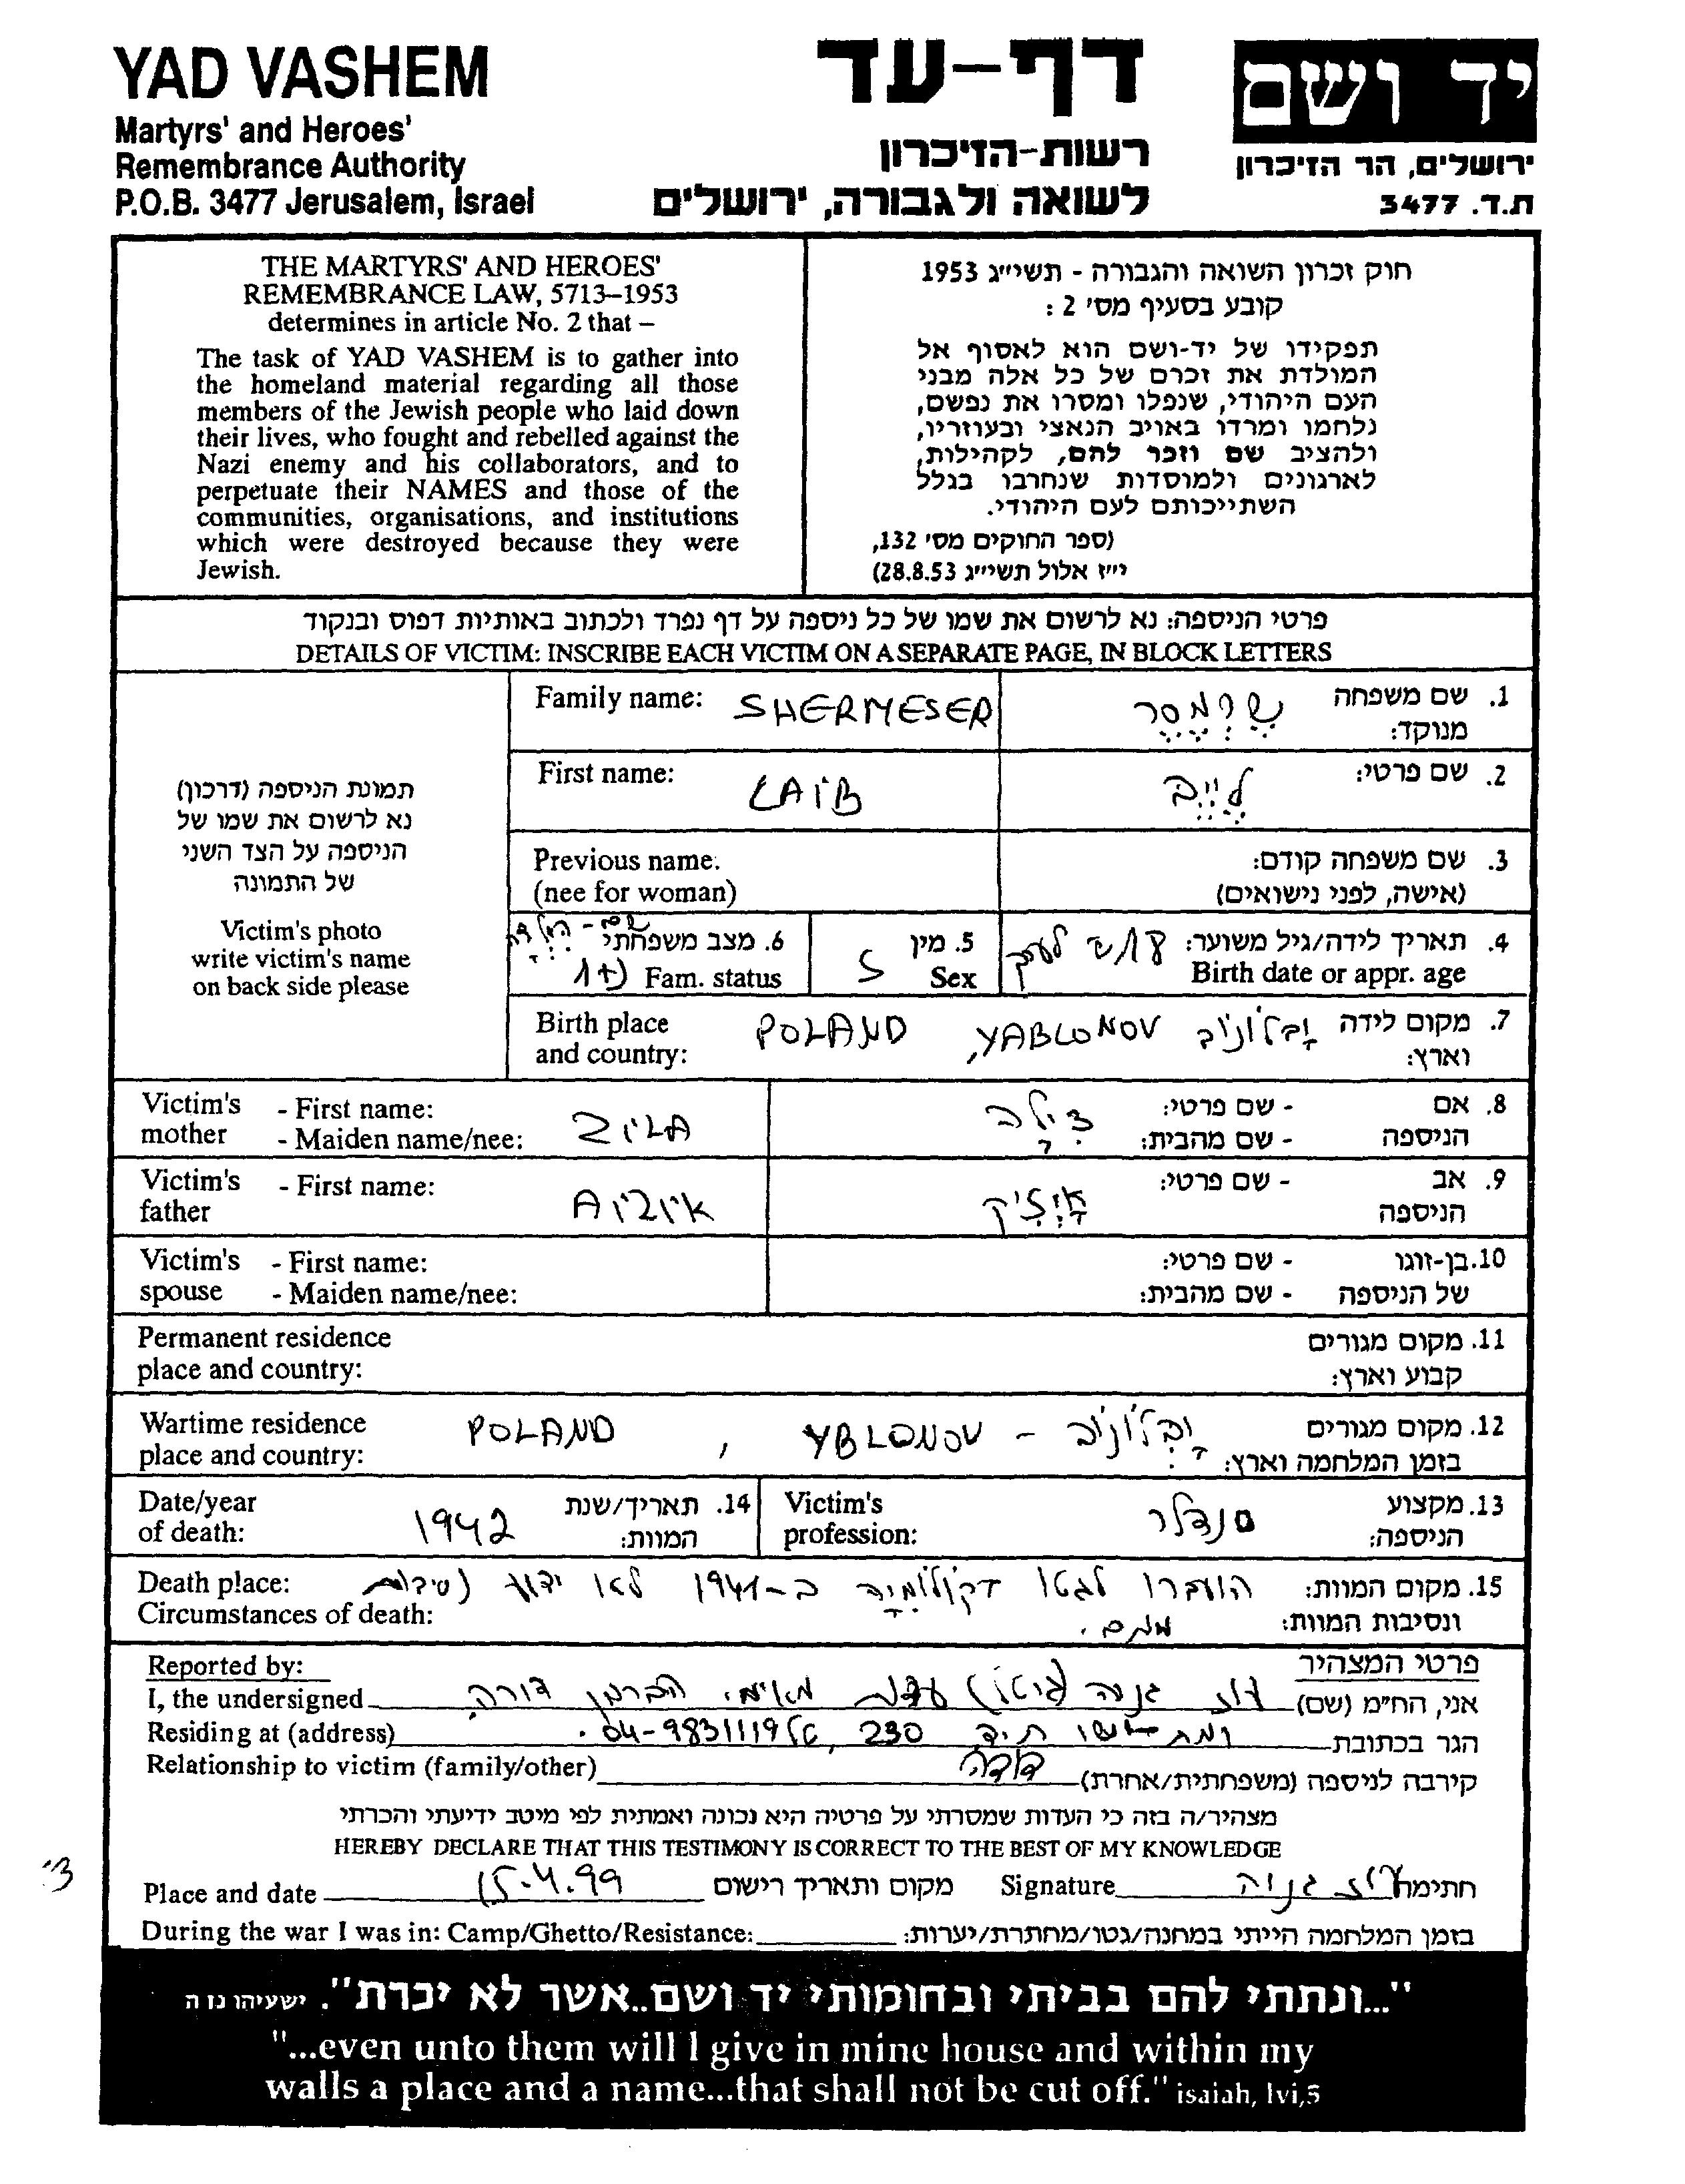 YAD VASHEM
Martyrs' and Heroes'
Remembrance Authority
P.O.B. 3477 Jerusalem, Israel
דף-עד
רשות-הזיכרון
לשואה ולגבורה, ירושלים
יד ושם
ירושלים, הר הזיכרון
ת.ד. 3477
THE MARTYRS' AND HEROES'
REMEMBRANCE LAW, 5713–1953
determines in article No. 2 that –
The task of YAD VASHEM is to gather into
the homeland material regarding all those
members of the Jewish people who laid down
their lives, who fought and rebelled against the
Nazi enemy and his collaborators, and to
perpetuate their NAMES and those of the
communities, organisations, and institutions
which were destroyed because they were
Jewish.
חוק זכרון השואה והגבורה - תשי״ג 1953
קובע בסעיף מס' 2 :
תפקידו של יד-ושם הוא לאסוף אל
המולדת את זכרם של כל אלה מבני
העם היהודי, שנפלו ומסרו את נפשם,
נלחמו ומרדו באויב הנאצי ובעוזריו,
ולהציב שם וזכר להם, לקהילות,
לארגונים ולמוסדות שנחרבו בגלל
השתייכותם לעם היהודי.
(ספר החוקים מס' 132,
י״ז אלול תשי״ג 28.8.53)
פרטי הניספה: נא לרשום את שמו של כל ניספה על דף נפרד ולכתוב באותיות דפוס ובנקוד
DETAILS OF VICTIM: INSCRIBE EACH VICTIM ON A SEPARATE PAGE, IN BLOCK LETTERS
תמונת הניספה (דרכון)
נא לרשום את שמו של
הניספה על הצד השני
של התמונה
Victim's photo
write victim's name
on back side please
Family name: SHERMESER שֶרְמֶסֶר 1. שם משפחה
מנוקד:
First name: LAIB לֵייבּ 2. שם פרטי:
Previous name. 3. שם משפחה קודם:
(nee for woman) (אישה, לפני נישואים)
6. מצב משפחתי 5. מין 4. תאריך לידה/גיל משוער:
1+ Fam. status Sex Birth date or appr. age
Birth place POLAND, YABLONOV יבלונוב 7. מקום לידה
and country: וארץ:
Victim's - First name: צילה - שם פרטי: 8. אם
mother - Maiden name/nee: ZILA - שם מהבית: הניספה
Victim's - First name: - שם פרטי: 9. אב
father AIZIK אייזיק הניספה
Victim's - First name: - שם פרטי: 10. בן-זוגו
spouse - Maiden name/nee: - שם מהבית: של הניספה
Permanent residence 11. מקום מגורים
place and country: קבוע וארץ:
Wartime residence POLAND, YBLONOV - יבלונוב 12. מקום מגורים
place and country: בזמן המלחמה וארץ:
Date/year 14. תאריך/שנת Victim's 13. מקצוע
of death: 1942 המוות: profession: סנדלר הניספה:
Death place: הועברו לגטו בקולומיה ב-1941 לא ידוע נסיבות 15. מקום המוות:
Circumstances of death: מותם. ונסיבות המוות:
Reported by: פרטי המצהיר
I, the undersigned דורה אני, הח״מ (שם)
Residing at (address) ת.ד. 230, טל 04-9831119. הגר בכתובת
Relationship to victim (family/other) דודה קירבה לניספה (משפחתית/אחרת)
מצהיר/ה בזה כי העדות שמסרתי על פרטיה היא נכונה ואמתית לפי מיטב ידיעתי והכרתי
HEREBY DECLARE THAT THIS TESTIMONY IS CORRECT TO THE BEST OF MY KNOWLEDGE
Place and date 15.4.99 מקום ותאריך רישום Signature חתימה
During the war I was in: Camp/Ghetto/Resistance: בזמן המלחמה הייתי במחנה/גטו/מחתרת/יערות:
"...ונתתי להם בביתי ובחומותי יד ושם..אשר לא יכרת". ישעיהו נו ה
"...even unto them will I give in mine house and within my
walls a place and a name...that shall not be cut off." isaiah, lvi,5